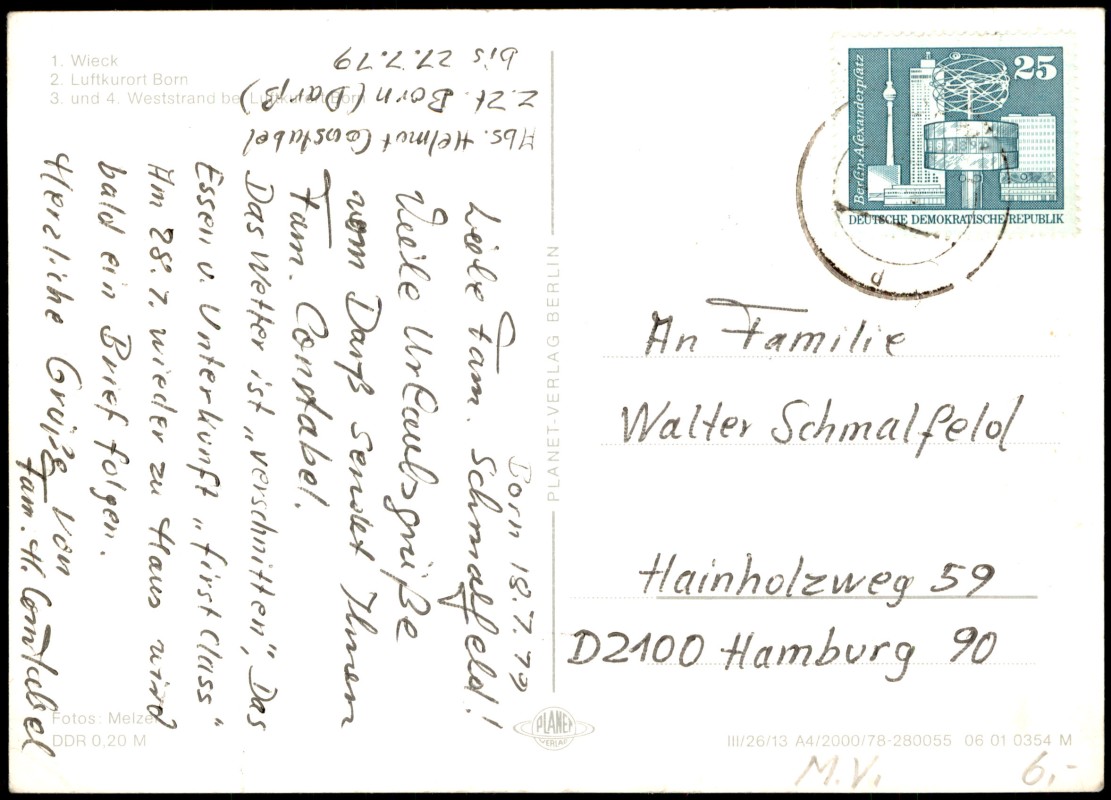 1. Wieck
2. Luftkurort Born
3. und 4. Weststrand bei Luftkurort Born
Abs. Helmut Constabel
z.Zt. Born (Darß)
bis 27.7.79
Born 18.7.79
Liebe Fam. Schmalfeld!
Viele Urlaubsgrüße
vom Darß sendet Ihnen
Fam. Constabel.
Das Wetter ist „verschnitten“, Das
Essen u. Unterkunft „first class“
Am 28.7. wieder zu Haus wird
bald ein Brief folgen.
Herzliche Grüße von
Fam. H. Constabel
Fotos: Melzer
DDR 0,20 M
PLANET-VERLAG BERLIN
PLANET
VERLAG
Berlin-Alexanderplatz
25
DEUTSCHE DEMOKRATISCHE REPUBLIK
An Familie
Walter Schmalfeld
Hainholzweg 59
D2100 Hamburg 90
III/26/13 A4/2000/78-280055 06 01 0354 M
M.V. 6,-